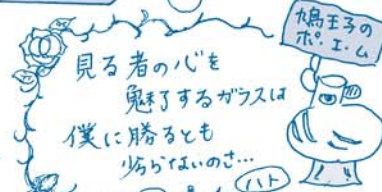 鳩王子の
ポ.エ.ム
見る者の心を
魅了するガラスは
僕に勝るとも
劣らないのさ…
ハト